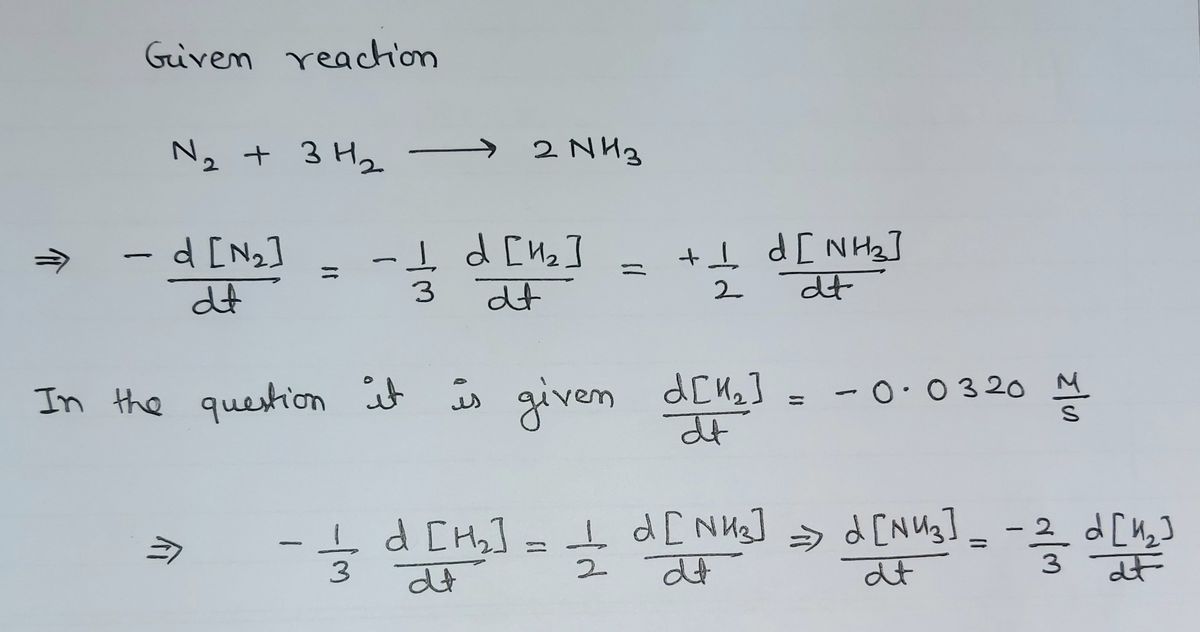 Given reaction
N₂ + 3 H₂ ⟶ 2 NH₃
⇒ - d[N₂]/dt = - 1/3 d[H₂]/dt = + 1/2 d[NH₃]/dt
In the question it is given d[H₂]/dt = - 0.0320 M/S
⇒ - 1/3 d[H₂]/dt = 1/2 d[NH₃]/dt ⇒ d[NH₃]/dt = - 2/3 d[H₂]/dt